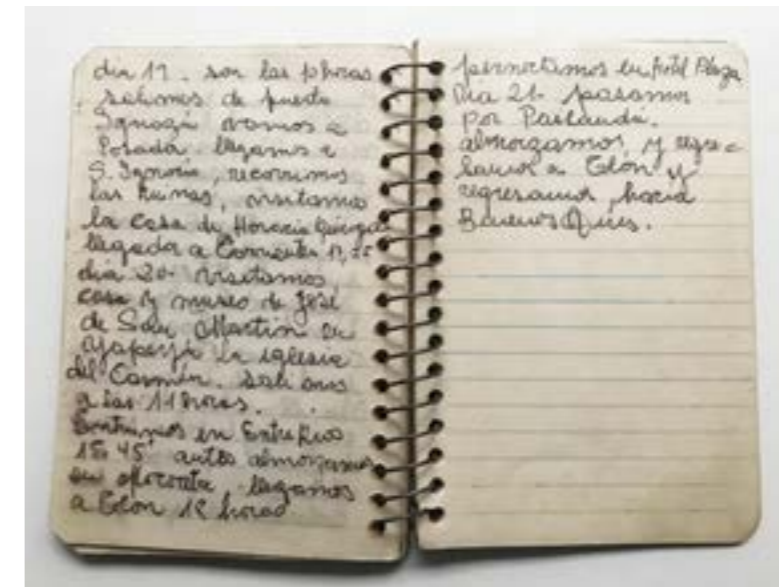 dia 19. son las 10 horas
salimos de puerto
Iguazú vamos a
Posada llegamos a
S. Ignacio, recorrimos
las ruinas, visitamos
la casa de Horacio Quiroga
llegada a Corrientes 17,25
dia 20. visitamos
casa y museo de José
de San Martin en
Yapeyú la iglesia
del Carmen. Salimos
a las 11 horas.
Entramos en Entre Rios
15,45 antes almorzamos
en llegamos
a Colon 18 horas
pernoctamos en hotel Plaza
Dia 21. pasamos
por
almorzamos, y regre-
samos a Colón y
regresamos hacia
Buenos Aires.